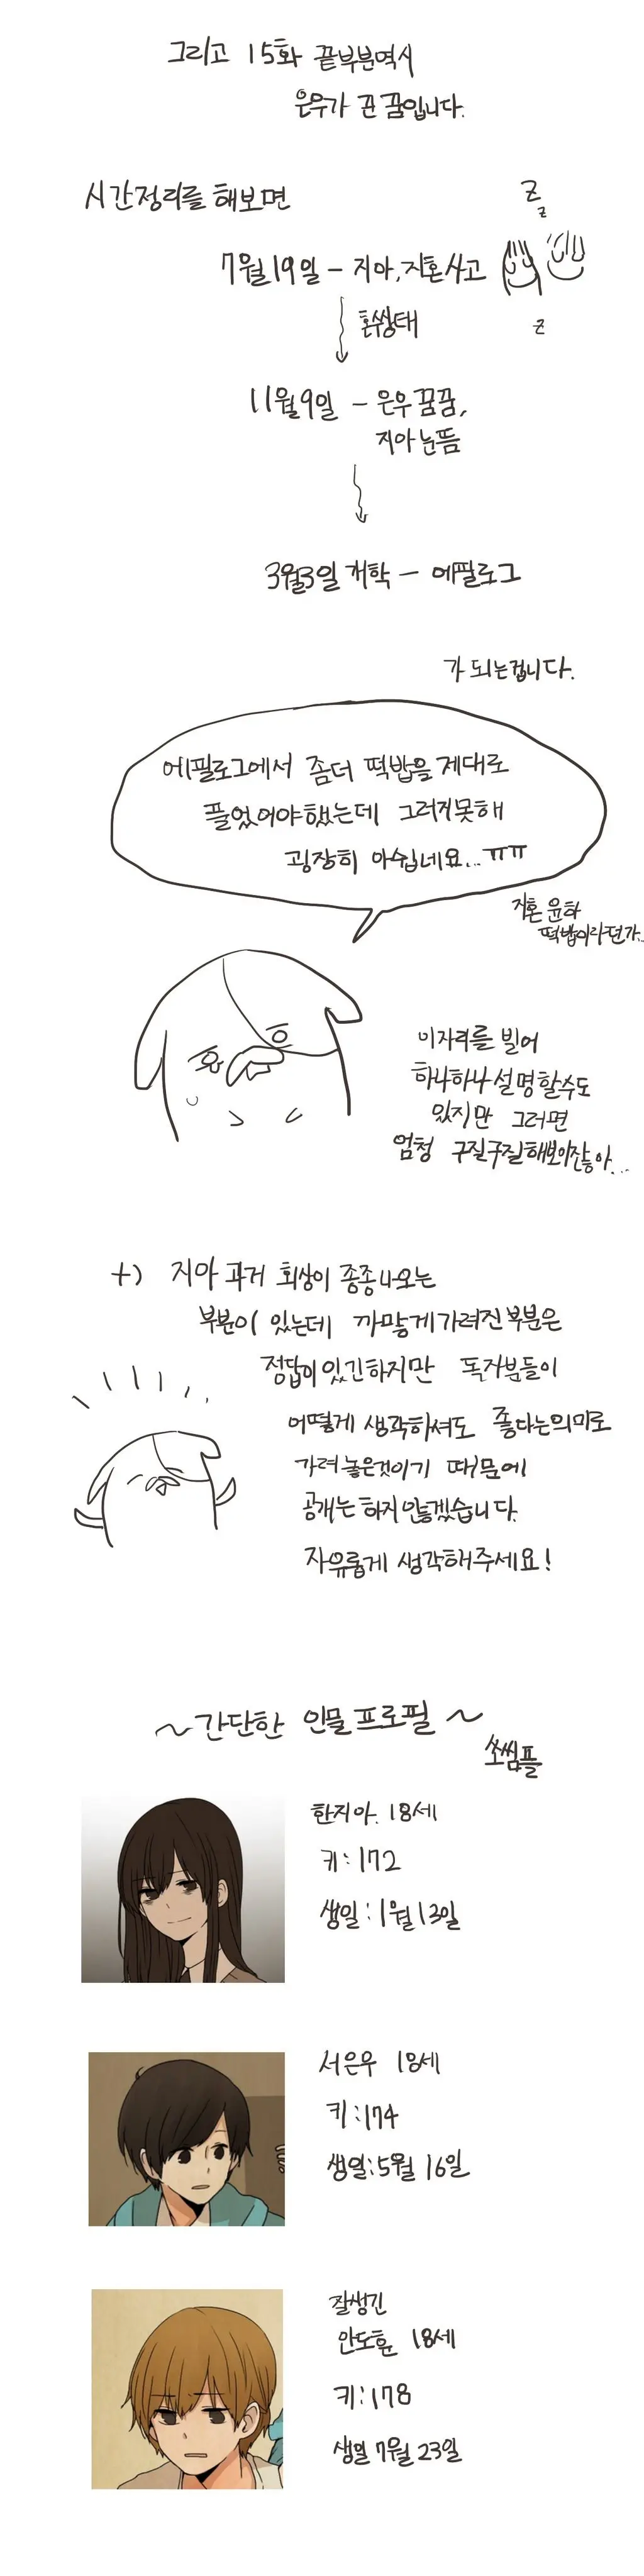 그리고 15화 끝부분역시
은우가 꾼 꿈입니다.
시간정리를 해보면
z
z
7월19일 - 지아,지혼사고
z
혼수상태
11월9일 - 은우꿈꿈,
지아눈뜸
3월3일 개학 - 에필로그
가 되는겁니다.
에필로그에서 좀더 떡밥을 제대로
풀었어야했는데 그러지못해
굉장히 아쉽네요...ㅠㅠ
지혼 윤하
떡밥이라던가..
이자리를 빌어
하나하나 설명할수도
있지만 그러면
엄청 구질구질해보이잖아...
+) 지아 과거 회상이 종종나오는
부분이 있는데 까맣게가려진부분은
정답이있긴하지만 독자분들이
어떻게 생각하셔도 좋다는의미로
가려놓은것이기 때문에
공개는 하지않겠습니다.
자유롭게 생각해주세요!
~간단한 인물프로필~
쏘씸플
한지아. 18세
키:172
생일:1월13일
서은우 18세
키:174
생일:5월 16일
잘생긴
안도훈 18세
키:178
생일 7월 23일